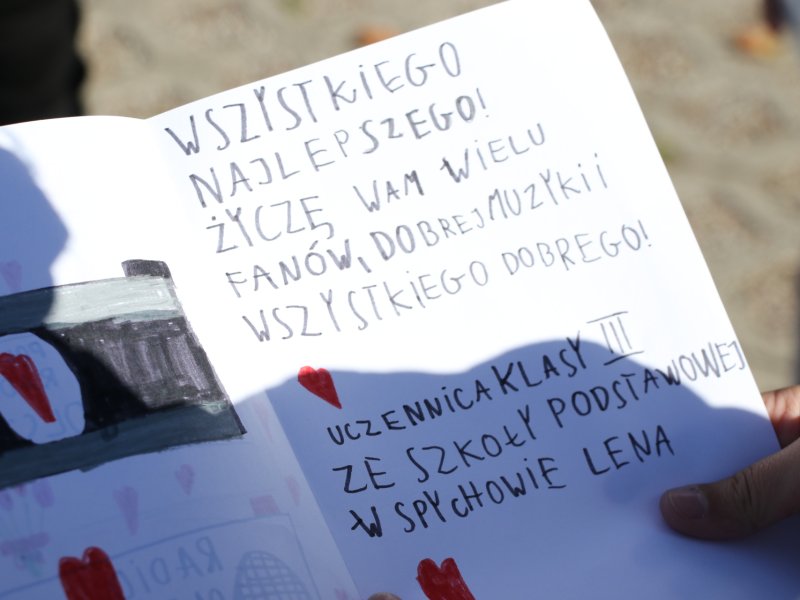 WSZYSTKIEGO
NAJLEPSZEGO!
ŻYCZĘ WAM WIELU
FANÓW, DOBREJ MUZYKI I
WSZYSTKIEGO DOBREGO!
UCZENNICA KLASY III
ZE SZKOŁY PODSTAWOWEJ
W SPYCHOWIE LENA
RADIO